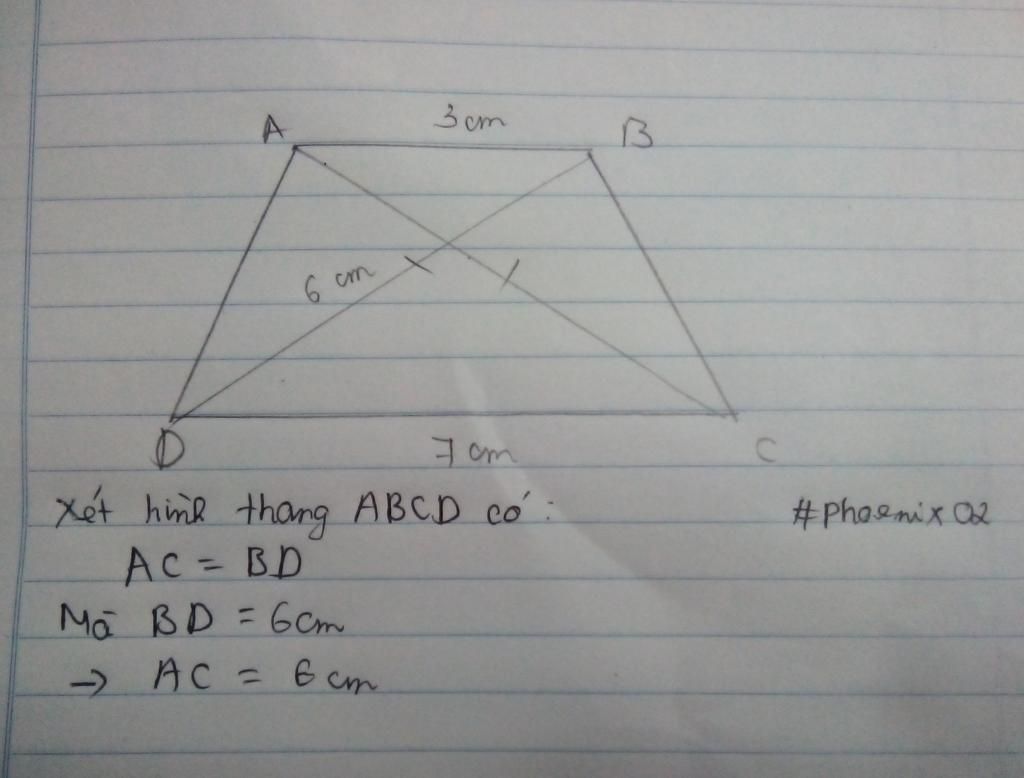 A 3cm B
6 cm
D 7 cm C
Xét hình thang ABCD có: #phoenix02
AC = BD
Mà BD = 6cm
→ AC = 6 cm